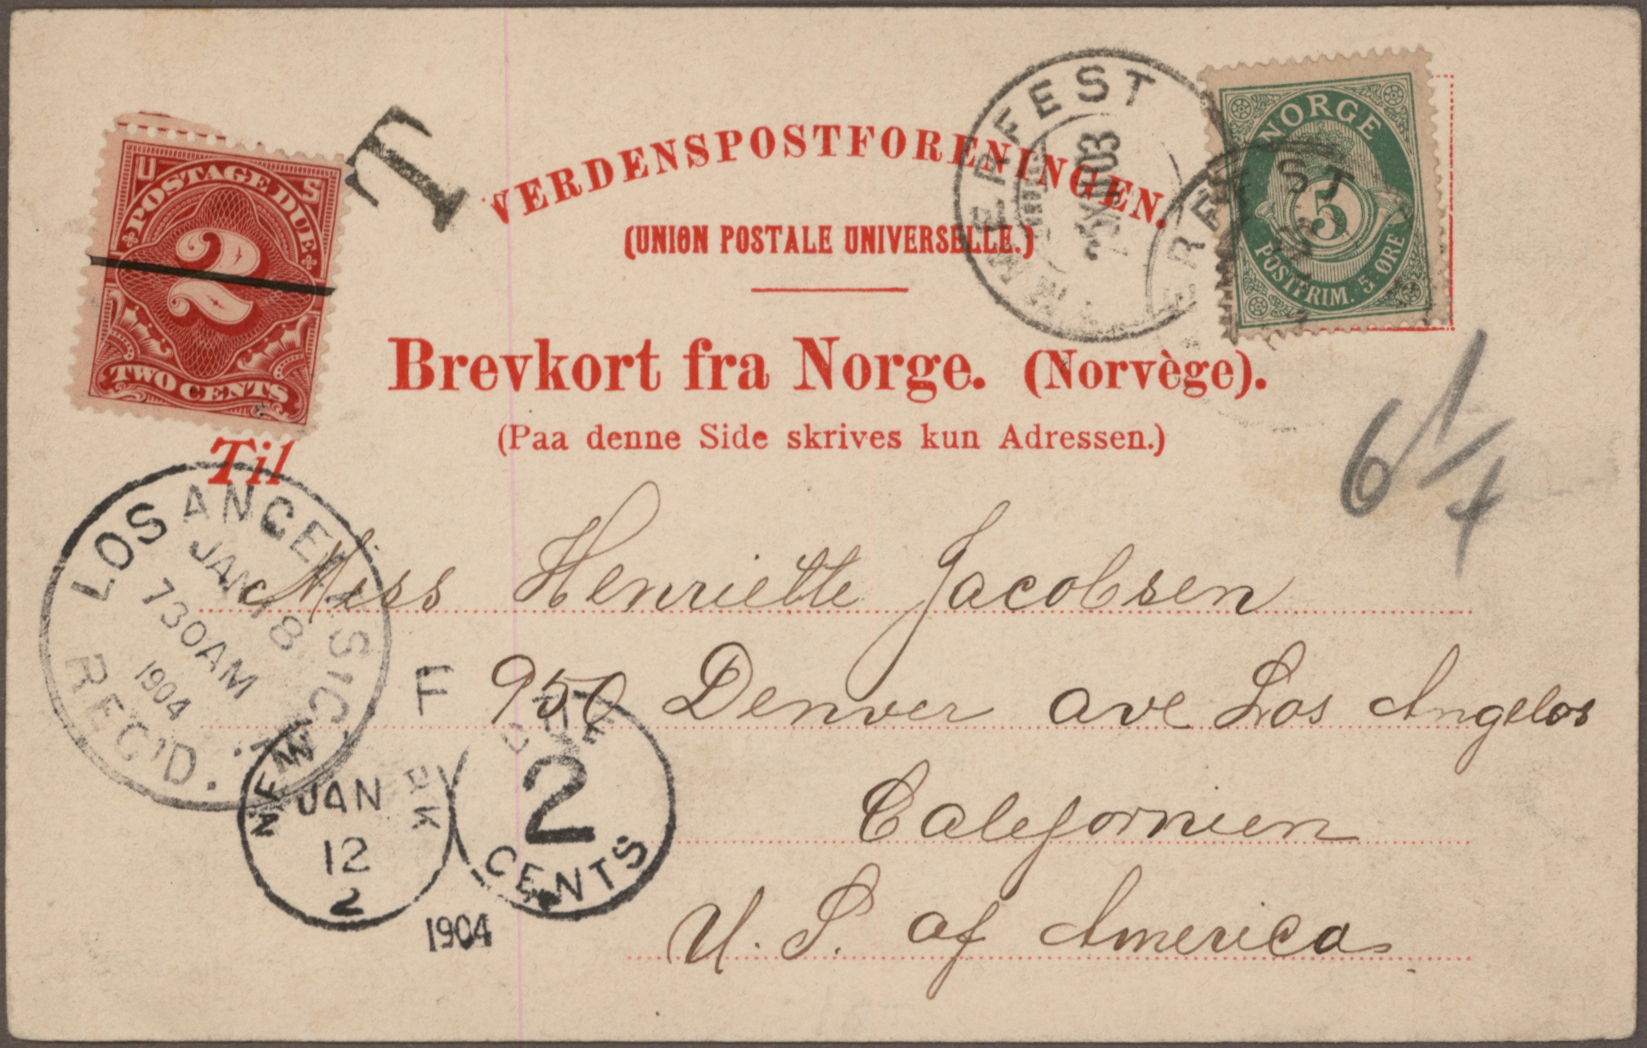 U S
POSTAGE DUE
2
TWO CENTS
T
VERDENSPOSTFORENINGEN.
(UNION POSTALE UNIVERSELLE.)
HAMMERFEST
XII 03
NORGE
5
POSTFRIM. 5 ØRE
Brevkort fra Norge. (Norvège).
(Paa denne Side skrives kun Adressen.)
6 1/4
Til
LOS ANGELES
JAN 18
730AM
1904
REC'D.
Miss Henriette Jacobsen
950 Denver ave Los Angelos
Calefornien
U. S. af America
NEW YORK
JAN
12
2
1904
F
DUE
2
CENTS